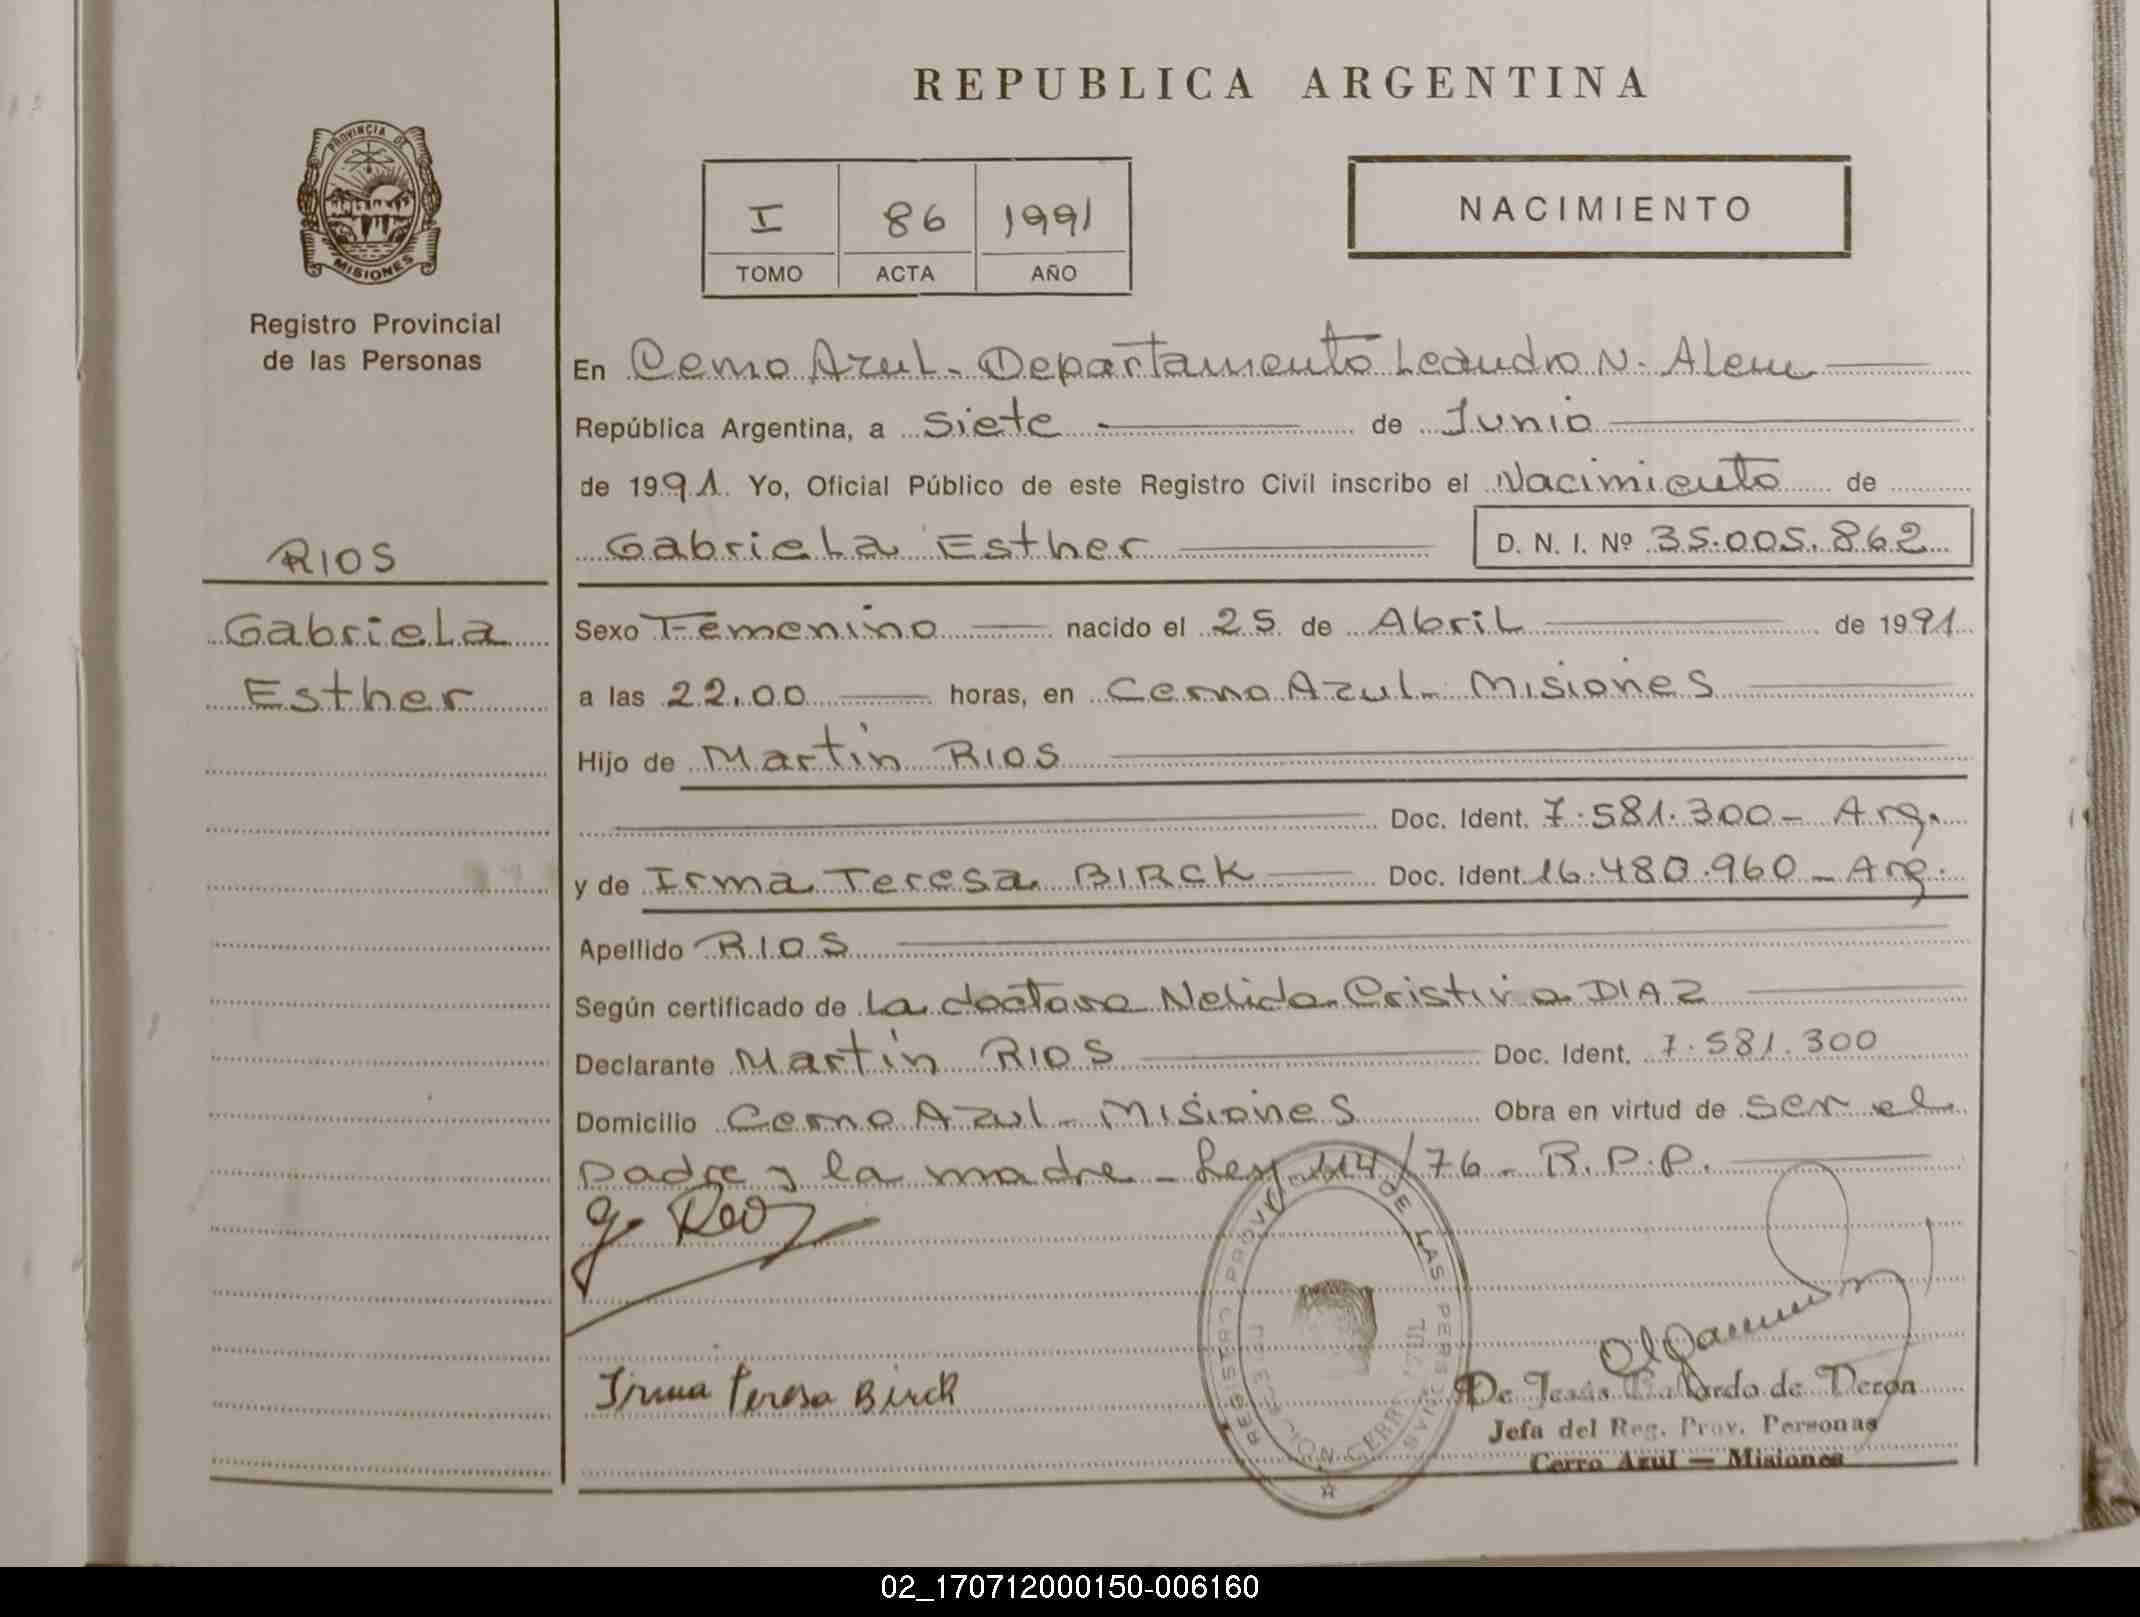 REPUBLICA ARGENTINA
PROVINCIA DE
MISIONES
Registro Provincial
de las Personas
I 86 1991
TOMO ACTA AÑO
NACIMIENTO
En Cerro Azul - Departamento Leandro N. Alem
República Argentina, a siete de Junio
de 1991. Yo, Oficial Público de este Registro Civil inscribo el Nacimiento de
Gabriela Esther D. N. I. Nº 35.005.862
RIOS
Gabriela
Esther
Sexo Femenino nacido el 25 de Abril de 1991
a las 22.00 horas, en Cerro Azul - Misiones
Hijo de Martin RIOS
Doc. Ident. 7.581.300 - Arg.
y de Irma Teresa BIRCK Doc. Ident. 16.480.960 - Arg.
Apellido RIOS
Según certificado de La doctora Nelida Cristina DIAZ
Declarante Martin RIOS Doc. Ident. 7.581.300
Domicilio Cerro Azul - Misiones Obra en virtud de ser el
padre y la madre - Ley 114/76 - R.P.P.
Irma Teresa Birck
REGISTRO PROVINCIAL DE LAS PERSONAS
De Jesús Gallardo de Deron
Jefa del Reg. Prov. Personas
Cerro Azul - Misiones
02_170712000150-006160